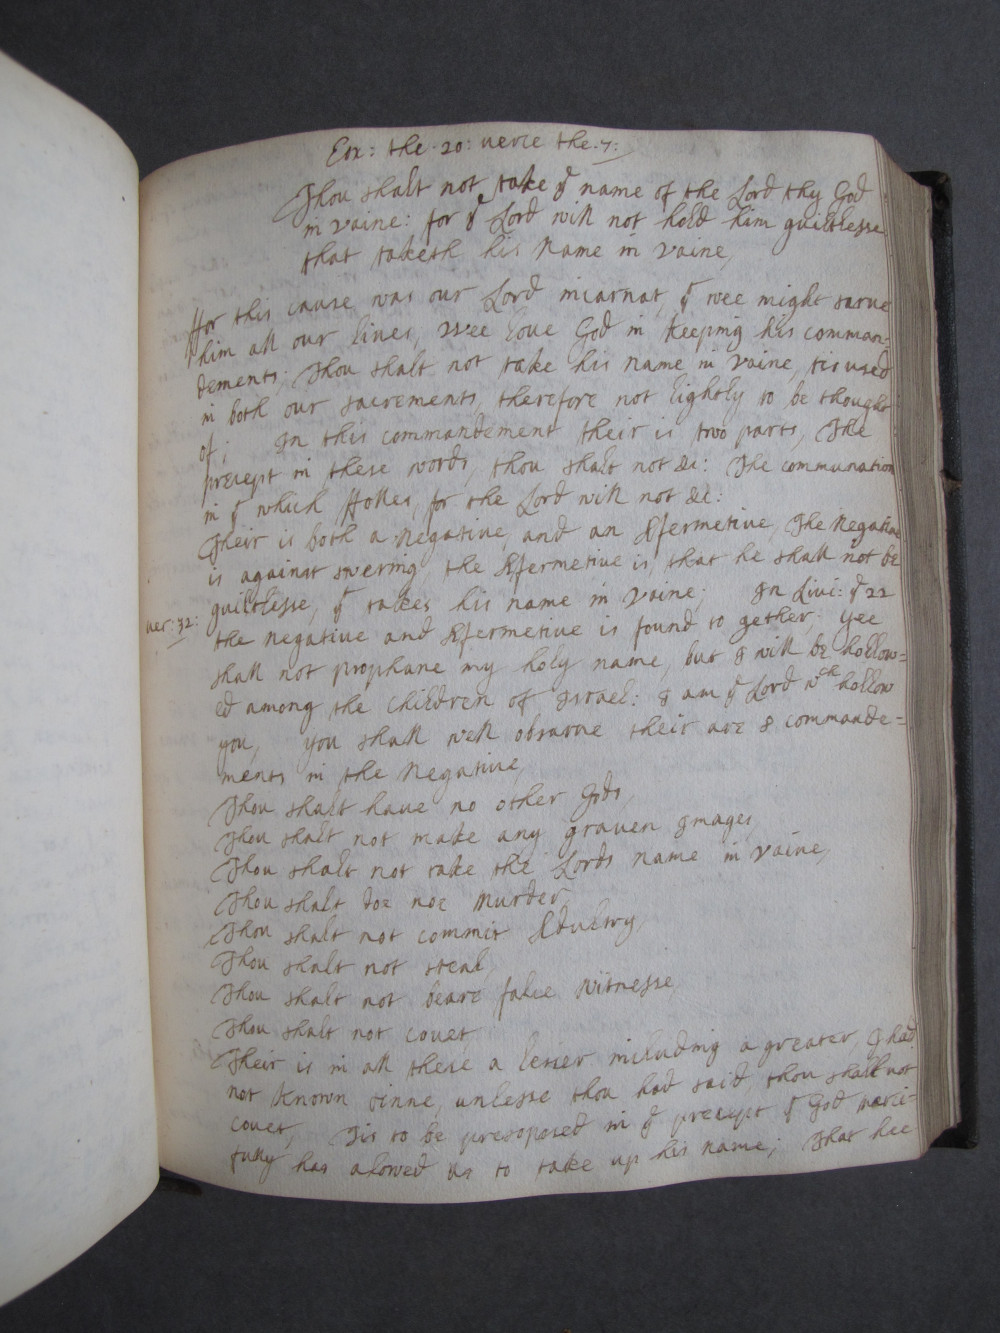 Exx: the .20: verce the .7:
Thou shalt not take yͤ name of the Lord thy God
in vaine: for yͤ Lord will not hold him guiltlesse
that taketh his Name in vaine,
ffor this cause was our Lord incarnat, yͭ wee might sarve
him all our lives, Wee love God in keeping his comman-
dements; Thou shalt not take his Name in vaine, tis used
in both our sacrements, therefore not lightly to be thought
of; In this commandement their is two parts, The
precept in these words, thou shalt not &c: The communation
in yͤ which ffolles, for the Lord will not &c:
Their is both a Negative, and an Afermetive, The Negative
is against swering, the Afermetive is, that he shall not be
guiltlesse, yͭ takes his name in vaine; In Livi: yͤ 22
ver: 32:
the negative and Afermetive is found to gether; yee
shall not prophane my holy name, but I will be hollow=
ed among the Children of Israel: I am yͤ Lord wᶜʰ hollow
you, you shall well obsarve their are 8 commande=
ments in the Negative,
Thou shalt have no other Gods,
Thou shalt not make any graven Images,
Thou shalt not take the Lords Name in vaine,
Thou shalt doe noe Murder,
Thou shalt not commit Adultry,
Thou shalt not steal,
Thou shalt not beare false witnesse,
Thou shalt not covet,
Their is in all these a lesser including a greater, I had
not known sinne, unlesse thou had said thou shalt not
covet, Tis to be presoposed in yͤ precept yͭ God marci=
fully has alowed us to take up his name; That hee